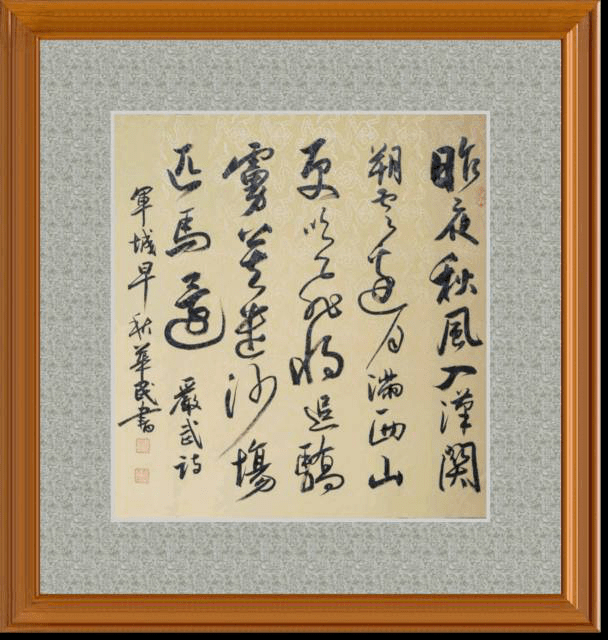 昨夜秋風入漢關
朔雲邊月滿西山
更催飛將追驕
虜莫遣沙場
匹馬還 嚴武詩
軍城早秋華民書